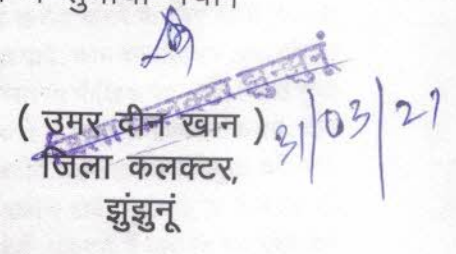 जिला कलक्टर झुन्झुनूं
( उमर दीन खान )
31/03/21
जिला कलक्टर,
झुंझुनूं